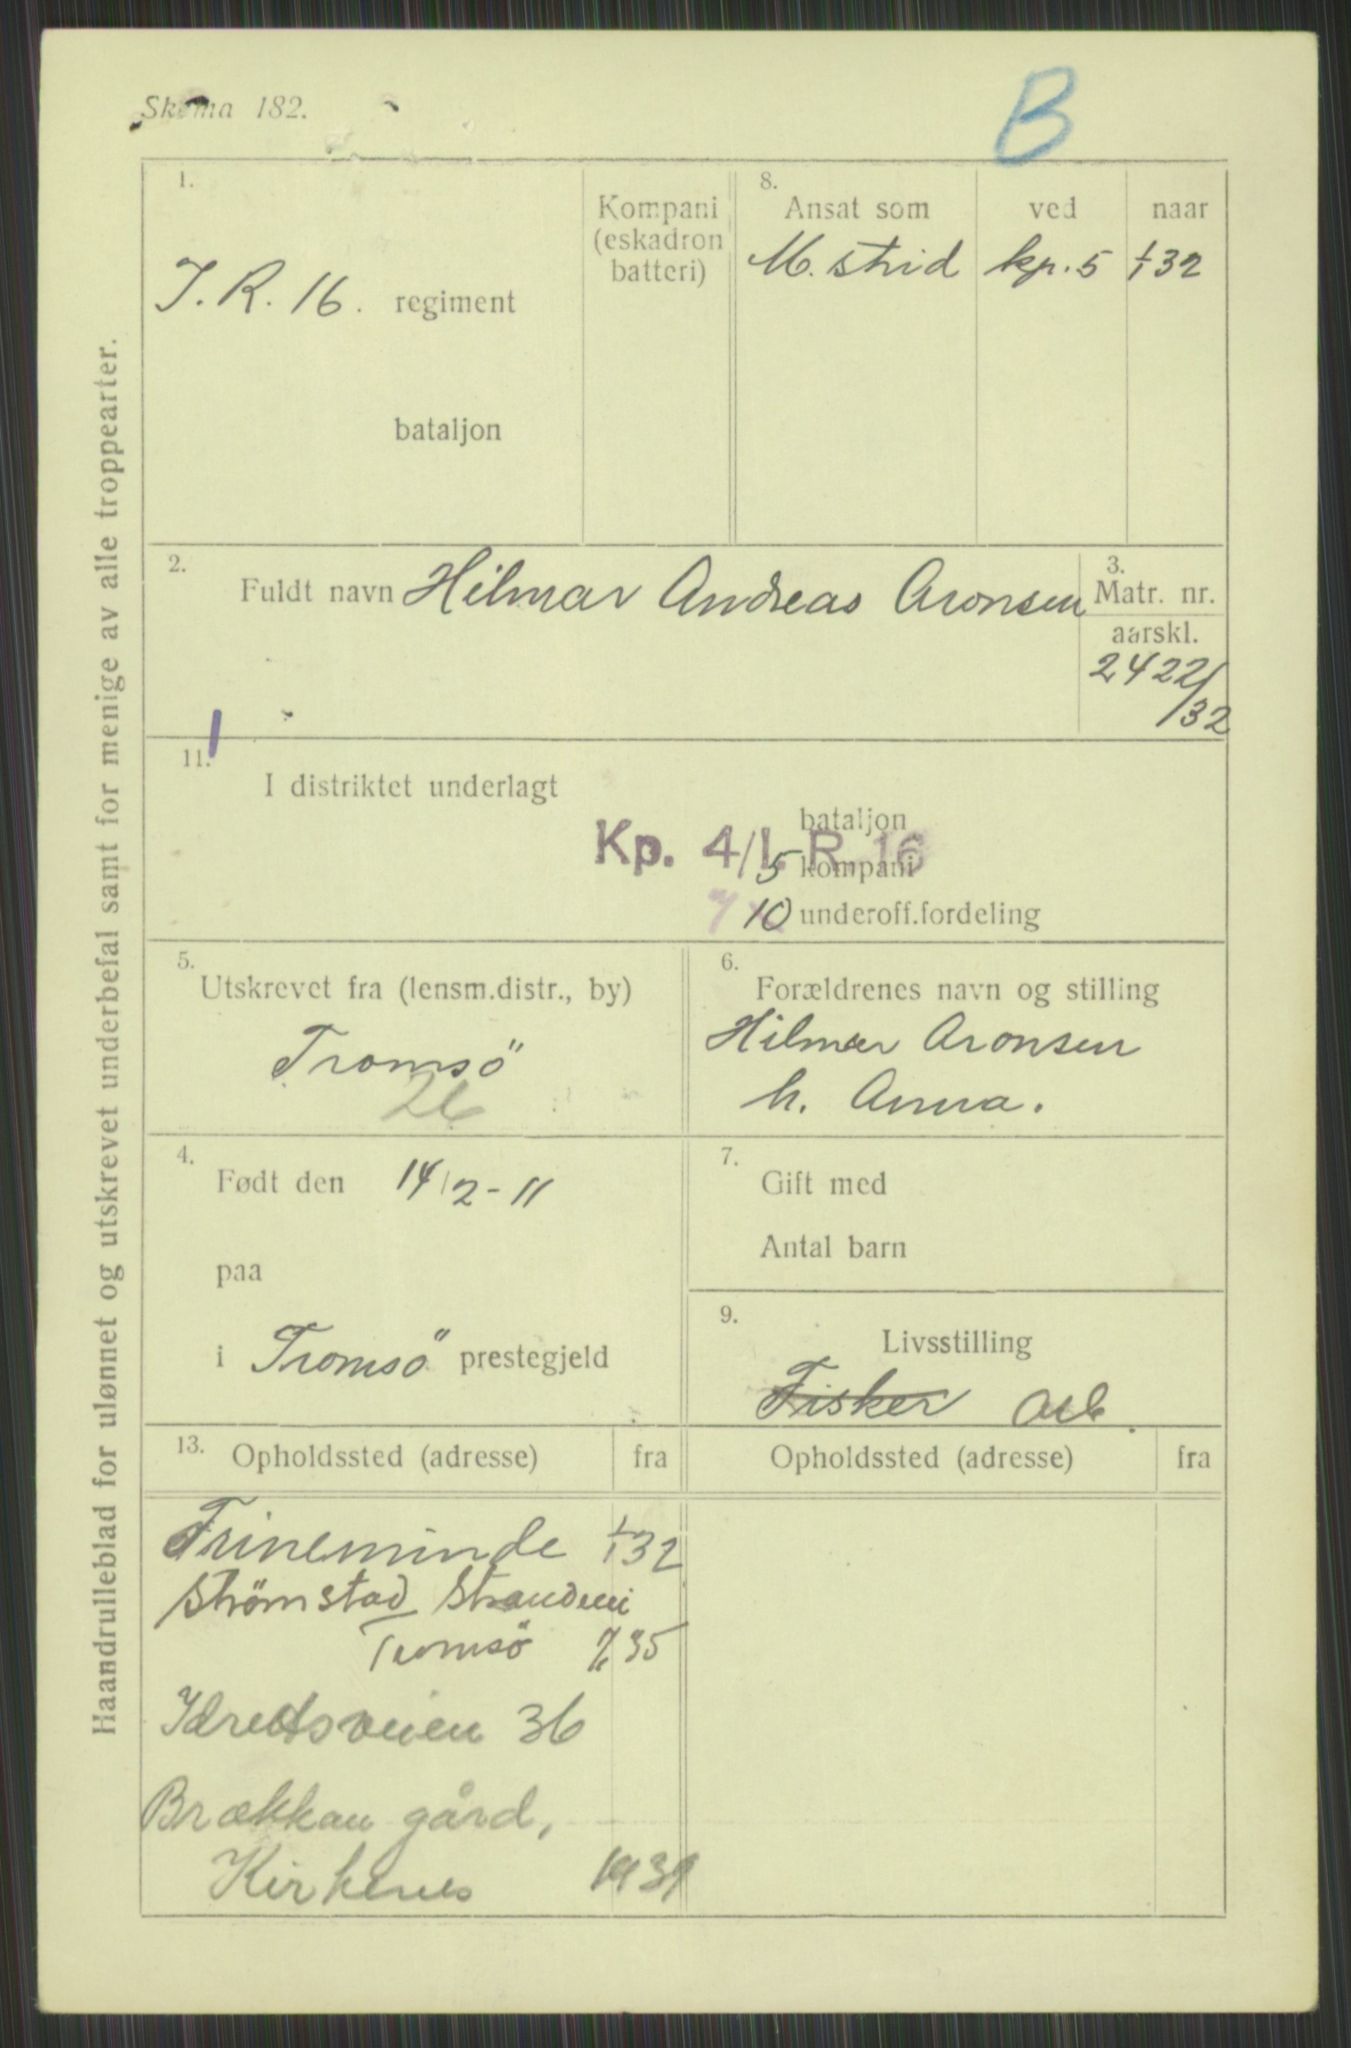 Skema 182.
B
Haandrulleblad for ulønnet og utskrevet underbefal samt for menige av alle troppearter.
1.
J. R. 16. regiment
bataljon
Kompani
(eskadron
batteri)
8.
Ansat som ved naar
M. strid kp. 5 1/1 32
2.
Fuldt navn Hilmar Andreas Aronsen
3.
Matr. nr.
aarskl.
2422/
/32
11.
I distriktet underlagt
bataljon
Kp. 4/I. R. 16
5 kompani
10 underoff.fordeling
5.
Utskrevet fra (lensm.distr., by)
Tromsö
26
6.
Forældrenes navn og stilling
Hilmar Aronsen
h. Anna.
4.
Født den 14/2-11
paa
i Tromsö prestegjeld
7.
Gift med
Antal barn
9.
Livsstilling
Fisker Arb.
13. Opholdssted (adresse) fra Opholdssted (adresse) fra
Trineminde 1/1 32
Strømstad Strandvei
Tromsö 35
Idrettsveien 36
Brækkan gård,
Kirkenes 1939